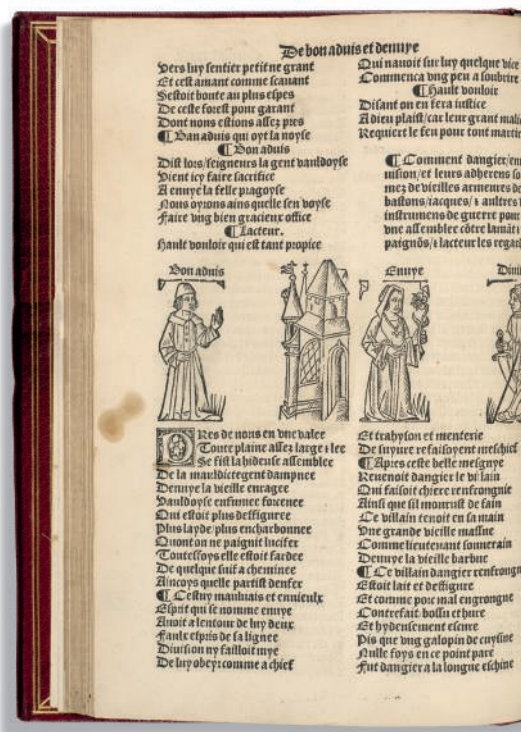 De bon aduis et denuye
Vers luy sentier petit ne grant
Et cest amant comme scauant
Sestoit boute au plus espes
De ceste forest pour garant
Dont nous estions assez pres
¶ Ban aduis qui oyt la noyse
¶ Bon aduis
Dist lors/seigneurs la gent vauldoyse
Vient icy faire sacrifice
A enuye la felle pragoyse
Nous oyrons ains quelle sen voyse
Faire vng bien gracieux office
¶ Lacteur.
Hault vouloir qui est tant propice
Qui nauoit sur luy quelque vice
Commenca vng peu a soubrire
¶ Hault vouloir
Disant on en fera iustice
A dieu plaist/car leur grant mali
Requiert le feu pour tout martir
¶ Comment dangier/en
uision/et leurs adherens so
mez de vieilles armeures de
bastons/iacques/⁊ aultres
instrumens de guerre pour
vne assembler cõtre lamãt
paignõs/⁊ lacteur les regar
Bon aduis
Enuye
Diui
PRes de nous en vne valee
Toute plaine assez large ⁊ lee
Se fist la hideuse assemblee
De la mauldicte gent dampnee
Denuye la vieille enragee
Vauldoyse enfumee forcenee
Qui estoit plus deffiguree
Plus layde/plus encharbonnee
Quont on ne paignit lucifer
Touteffoys elle estoit fardee
De quelque suif a cheminee
Aincoys quelle partist denfer
¶ Cestuy mauluais et ennieulx
Esprit qui se nomme enuye
Auoit a lentour de luy deux
Faulx espris de sa lignee
Diuision ny failloit mye
De luy obeyr comme a chief
Et trahyson et menterie
De suyure refaisoyent meschief
¶ Apres ceste belle mesgnye
Reuenoit dangier le villain
Qui faisoit chiere renfrongnie
Ainsi que sil mourust de fain
Ce villain tenoit en sa main
Vne grande vieille massue
Comme lieutenant souuerain
Denuye la vieille barbue
¶ Ce villain dangier renfrongn
Estoit lait et deffigure
Et comme porc mal engrongne
Contrefait bossu et hure
Et hydeusement escure
Pis que vng galopin de cuysine
Nulle foys en ce point pare
Fut dangier a la longue eschine